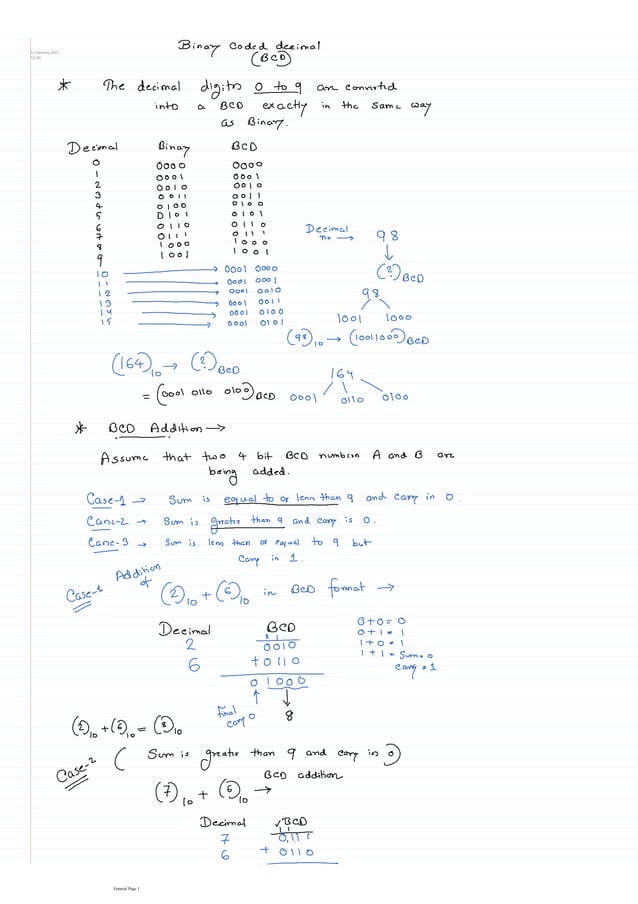 11 January 2021
12:36
Binary Coded decimal
(BCD)
* The decimal digits 0 to 9 are converted
into a BCD exactly in the same way
as Binary.
Decimal Binary BCD
0 0000 0000
1 0001 0001
2 0010 0010
3 0011 0011
4 0100 0100
5 0101 0101
6 0110 0110
7 0111 0111
8 1000 1000
9 1001 1001
10 → 0001 0000
11 → 0001 0001
12 → 0001 0010
13 → 0001 0011
14 → 0001 0100
15 → 0001 0101
Decimal no → 98
↓
(?)BCD
98
1001 1000
(98)10 → (10011000)BCD
(164)10 → (?)BCD
= (0001 0110 0100)BCD
164
0001 0110 0100
* BCD Addition →
Assume that two 4 bit BCD numbers A and B are
being added.
Case-1 → Sum is equal to or less than 9 and carry is 0.
Case-2 → Sum is greater than 9 and carry is 0.
Case-3 → Sum is less than or equal to 9 but
carry is 1.
Case-1 Addition of (2)10 + (6)10 in BCD format →
Decimal BCD
1 1
2 0010
6 +0110
0 1000
↑ ↓
Final carry 0 8
0+0=0
0+1=1
1+0=1
1+1=Sum=0
Carry=1
(2)10 + (6)10 = (8)10
Case-2 ( Sum is greater than 9 and carry is 0)
(7)10 + (6)10 → BCD addition
Decimal BCD
7 0111
6 + 0110
General Page 1